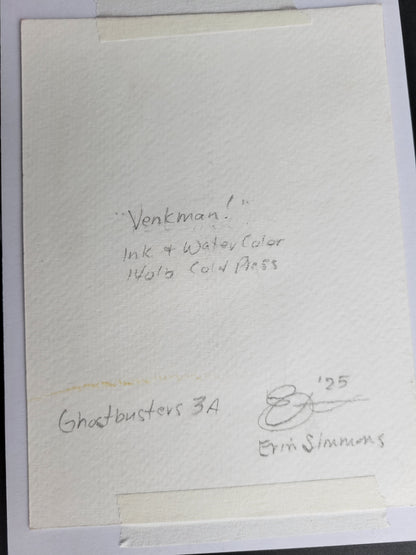 "Venkman!"
Ink & Water Color
140lb Cold Press
Ghostbusters 3A
'25
Erin Simmons